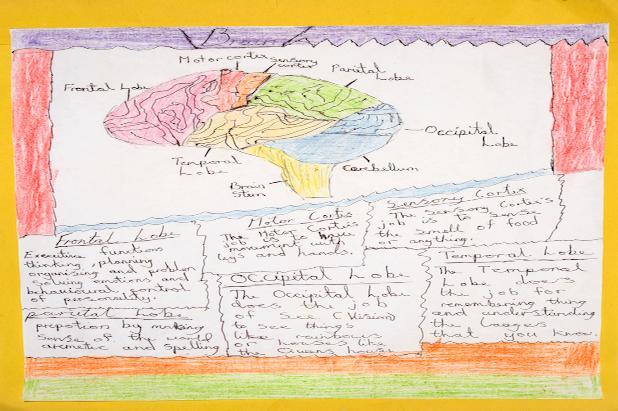 Brain
Motor cortex
sensory
cortex
Parital
Lobe
Frontal Lobe
Occipital
Lobe
Temporal
Lobe
Cerebellum
Brain
Stem
Frontal Lobe
Executive functions
thinking, planning
organising and problem
solving emotions and
behavioural control
of personality.
Parital Lobe
by making
sense of the world
arcmetic and spelling
Motor Cortis
The Motor Cortis
job is to
movement with
legs and hands.
Occipital Lobe
The Occipital Lobe
does the job
of See (Vision)
to see things
like rainbows
or houses like
the Queens house
Sensory Cortex
The Sensory Cortex's
job is to sense
the smell of food
or anything.
Temporal Lobe
The Temporal
Lobe does
the job for
remembering thing
and understanding
the
that you know.